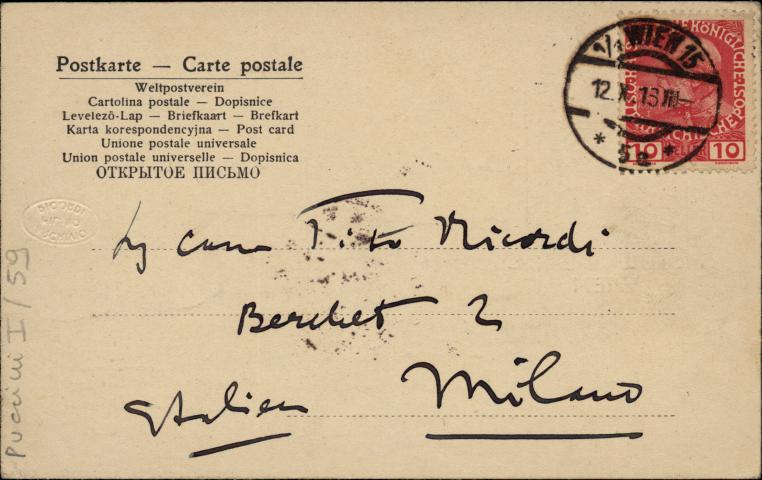 Postkarte — Carte postale
Weltpostverein
Cartolina postale — Dopisnice
Levelezö-Lap — Briefkaart — Brefkort
Karta korespondencyjna — Post card
Unione postale universale
Union postale universelle — Dopisnica
ОТКРЫТОЕ ПИСЬМО
1/1 WIEN 15
12.X.13
* 5a *
10 10
RICORDI
ARCHIVIO
Tito Ricordi
Berchet 2
Italien Milano
Puccini I/59